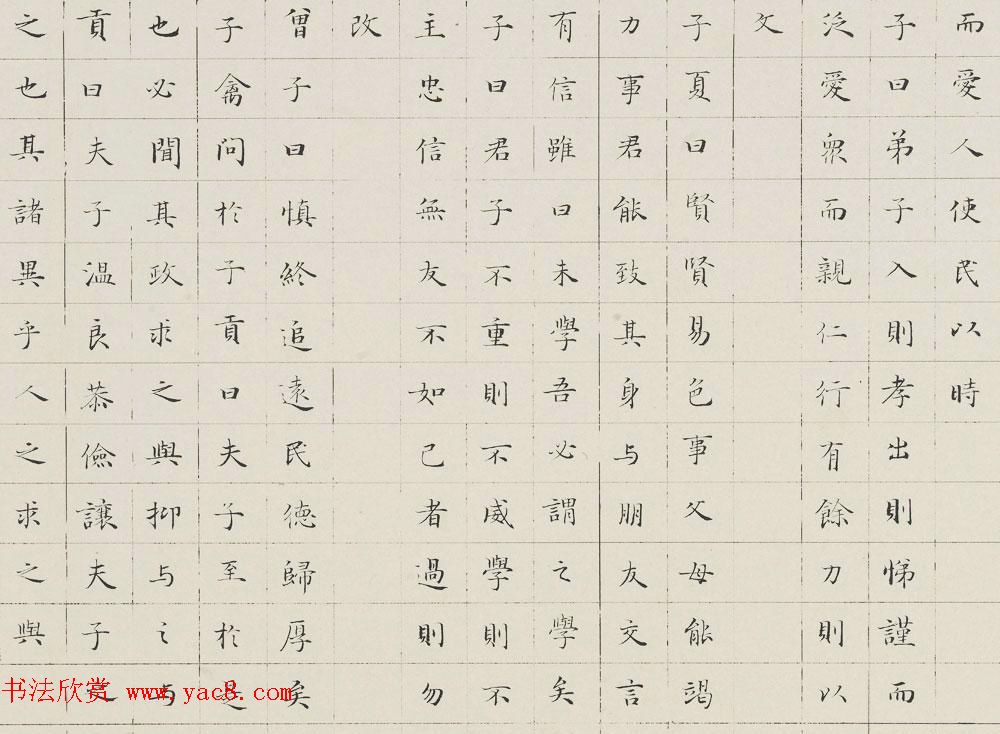 而愛人使民以時
子曰弟子入則孝出則悌謹而
泛愛眾而親仁行有餘力則以
文
子夏曰賢賢易色事父母能竭
力事君能致其身与朋友交言
有信雖曰未學吾必謂之學矣
子曰君子不重則不威學則不
主忠信無友不如己者過則勿
改
曾子曰慎終追遠民德歸厚矣
子禽問於子貢曰夫子至於是
也必聞其政求之與抑与之与
貢曰夫子溫良恭儉讓夫子
之也其諸異乎人之求之與
书法欣赏 www.yac8.com